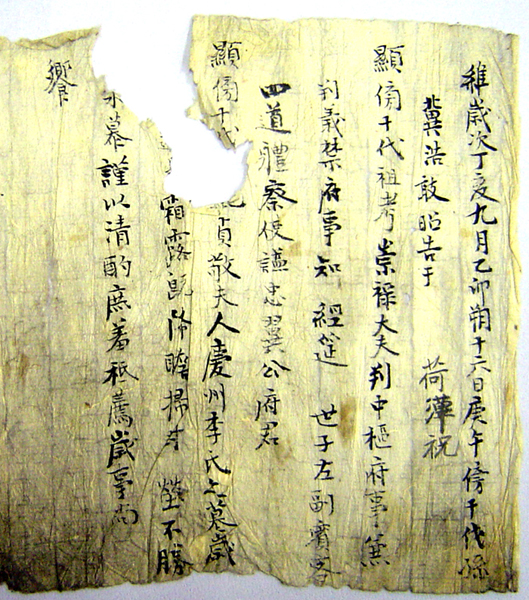 維歲次丁亥九月乙卯朔十六日庚午傍十代孫
冀浩敢昭告于 荷潭祝
顯傍十代祖考崇祿大夫判中樞府事兼
判義禁府事知 經筵 世子左副賓客
四道體察使諡忠翼公府君
顯傍十代 貞敬夫人慶州李氏之墓歲
霜露旣降瞻掃封塋不勝
慕謹以清酌庶羞祗薦歲事尙
饗